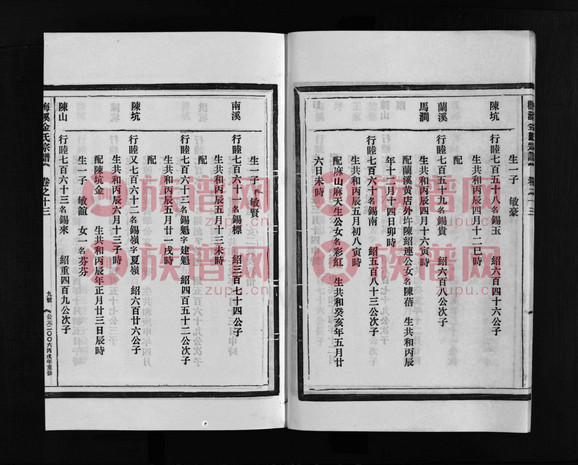 陳坑
行睦七百五十八名錫玉 紹六百四十六公子
生共和丙辰四月十二巳時
配
生一子 敏豪
蘭溪
行睦七百五十九名錫貴 紹六百八公次子
馬澗
生共和丙辰四月十六寅時
配蘭溪黄店外許陳紹連公女名陳蓓 生共和丙辰
年十三月十四日卯時
行睦七百六十名錫南 紹五百八十三公次子
生共和丙辰五月初八寅時
配麻山麻天生公女名彩紅 生共和癸亥年五月廿
六日未時
南溪
行睦七百六十一名錫標 紹三百七十四公子
生共和丙辰五月十三未時
配
生一子 敏賢
行睦七百六十三名錫魁字建魁 紹四百五十二公次子
生共和丙辰五月廿一戌時
配
陳坑
行睦又七百六十二名錫嶺字夏嶺 紹六百廿六公子
生共和丙辰六月十三子時
配陳坑金 生共和丙辰年正月廿三日辰時
生一子 敏誼 女一名芬芬
陳山
行睦七百六十三名錫來 紹重四百九公次子
梅溪金氏宗譜 卷之十三
九號 公元二〇〇六丙戌年重修
族谱网
zupu.cn